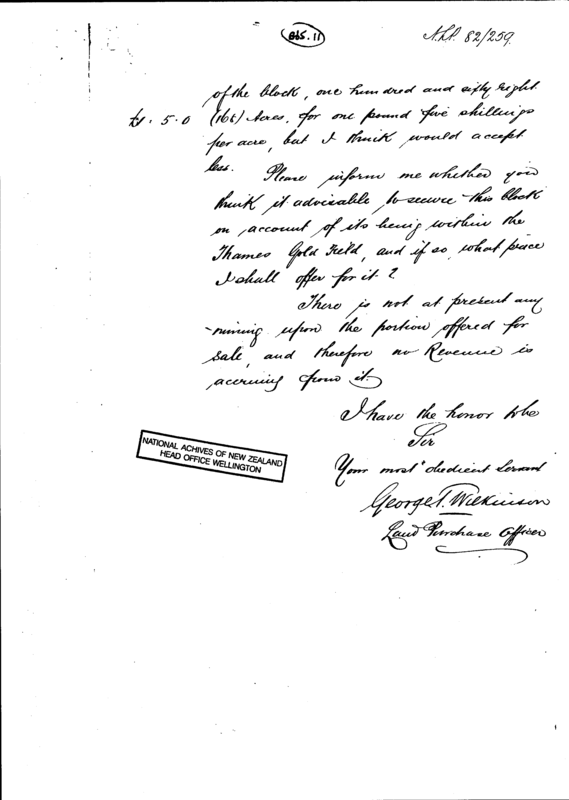 B65.11
N.L.P. 82/259
of the block, one hundred and sixty eight
£1. 5. 0 (168) Acres, for one pound five shillings
per acre, but I think would accept
less. Please inform me whether you
think it advisable to secure this block
on account of its being within the
Thames Gold Field, and if so, what price
I shall offer for it?
There is not at present any
mining upon the portion offered for
Sale, and therefore no Revenue is
accruing from it.
I have the honor to be
Sir
Your most obedient Servant
George T. Wilkinson
Land Purchase Officer
NATIONAL ACHIVES OF NEW ZEALAND
HEAD OFFICE WELLINGTON